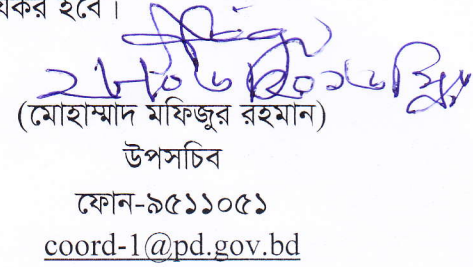 হবে।
(মোহাম্মাদ মফিজুর রহমান)
উপসচিব
ফোন-৯৫১১০৫১
coord-1@pd.gov.bd